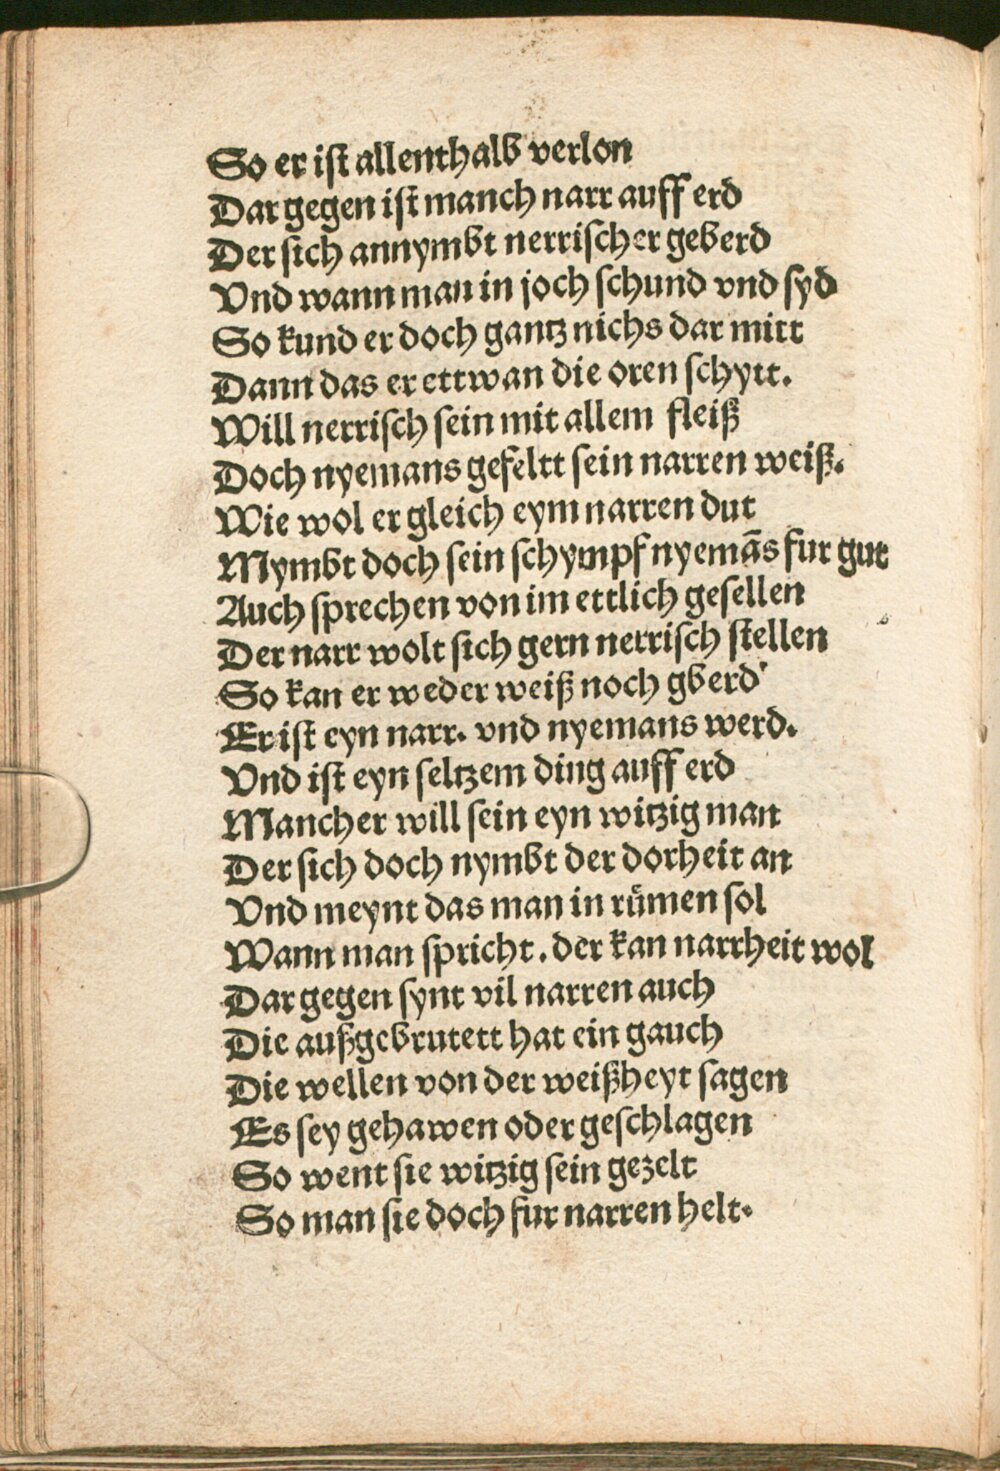 So er ist allenthalb verlon
Dar gegen ist manch narr auff erd
Der sich annymbt nerrischer geberd
Vnd wann man in joch schund vnd syd
So kund er doch gantz nichs dar mitt
Dann das er ettwan die oren schytt.
Will nerrisch sein mit allem fleiß
Doch nyemans gefeltt sein narren weiß.
Wie wol er gleich eym narren dut
Mymbt doch sein schympf nyemãs fur gut
Auch sprechen von im ettlich gesellen
Der narr wolt sich gern nerrisch stellen
So kan er weder weiß noch gberd'
Er ist eyn narr. vnd nyemans werd.
Vnd ist eyn seltzem ding auff erd
Mancher will sein eyn witzig man
Der sich doch nymbt der dorheit an
Vnd meynt das man in růmen sol
Wann man spricht. der kan narrheit wol
Dar gegen synt vil narren auch
Die außgebrutett hat ein gauch
Die wellen von der weißheyt sagen
Es sey gehawen oder geschlagen
So went sie witzig sein gezelt
So man sie doch fur narren helt.